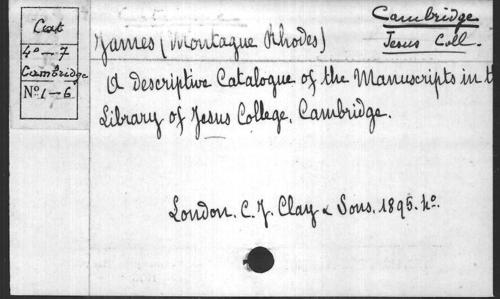 Cat
4º - 7
Cambridge
Nº 1-6
Cambridge
Jesus Coll.
James (Montague Rhodes)
A Descriptive Catalogue of the Manuscripts in t
Library of Jesus College, Cambridge.
London. C. J. Clay & Sons. 1895. 4º.